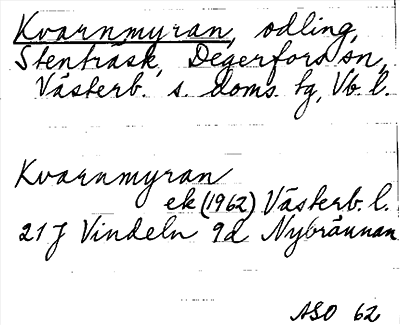 Kvarnmyran, odling,
Stenträsk, Degerfors sn,
Västerb. s. doms. tg, Vb. l.
Kvarnmyran
ek (1962) Västerb. l.
21 J Vindeln 9d Nybrännan
ASO 62